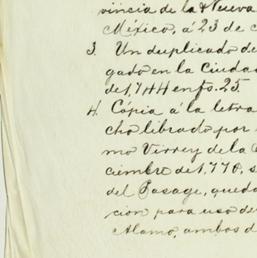 vincia de la Nueva
México, á 23 de
3. Un duplicado de
gado en la Ciudad
del, 744 en fo. 25
4. Cópia á la letra
cho librado por
mo Virrey de la
ciembre de 1,770,
del Pasage, queda
cion para uso de
Alamo, ambos d